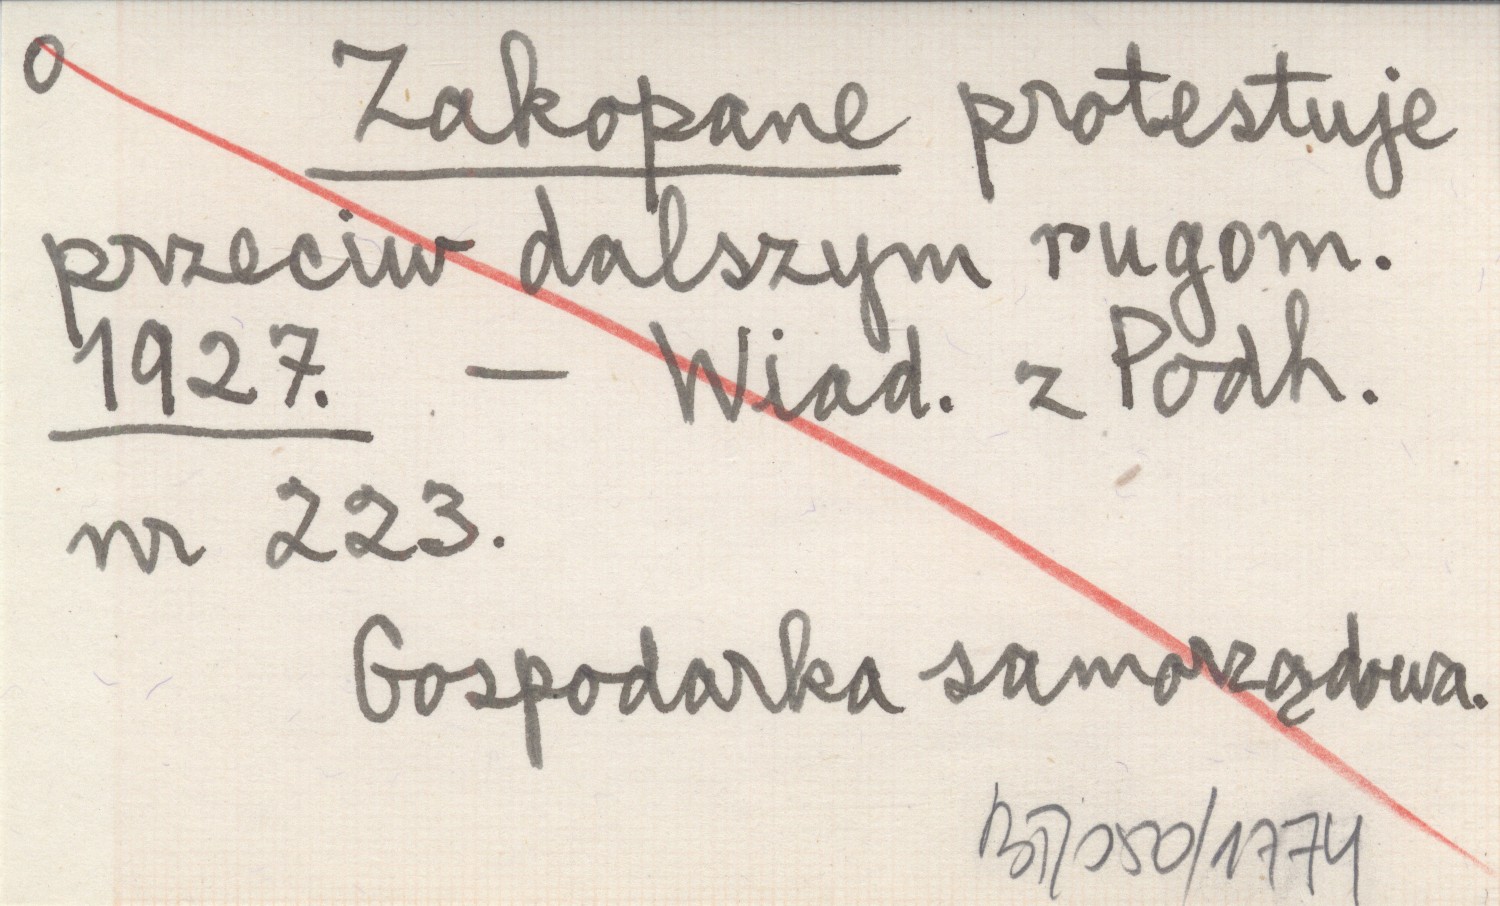 O Zakopane protestuje
przeciw dalszym rugom.
1927. — Wiad. z Podh.
nr 223.
Gospodarka samorządowa.
/050/1774